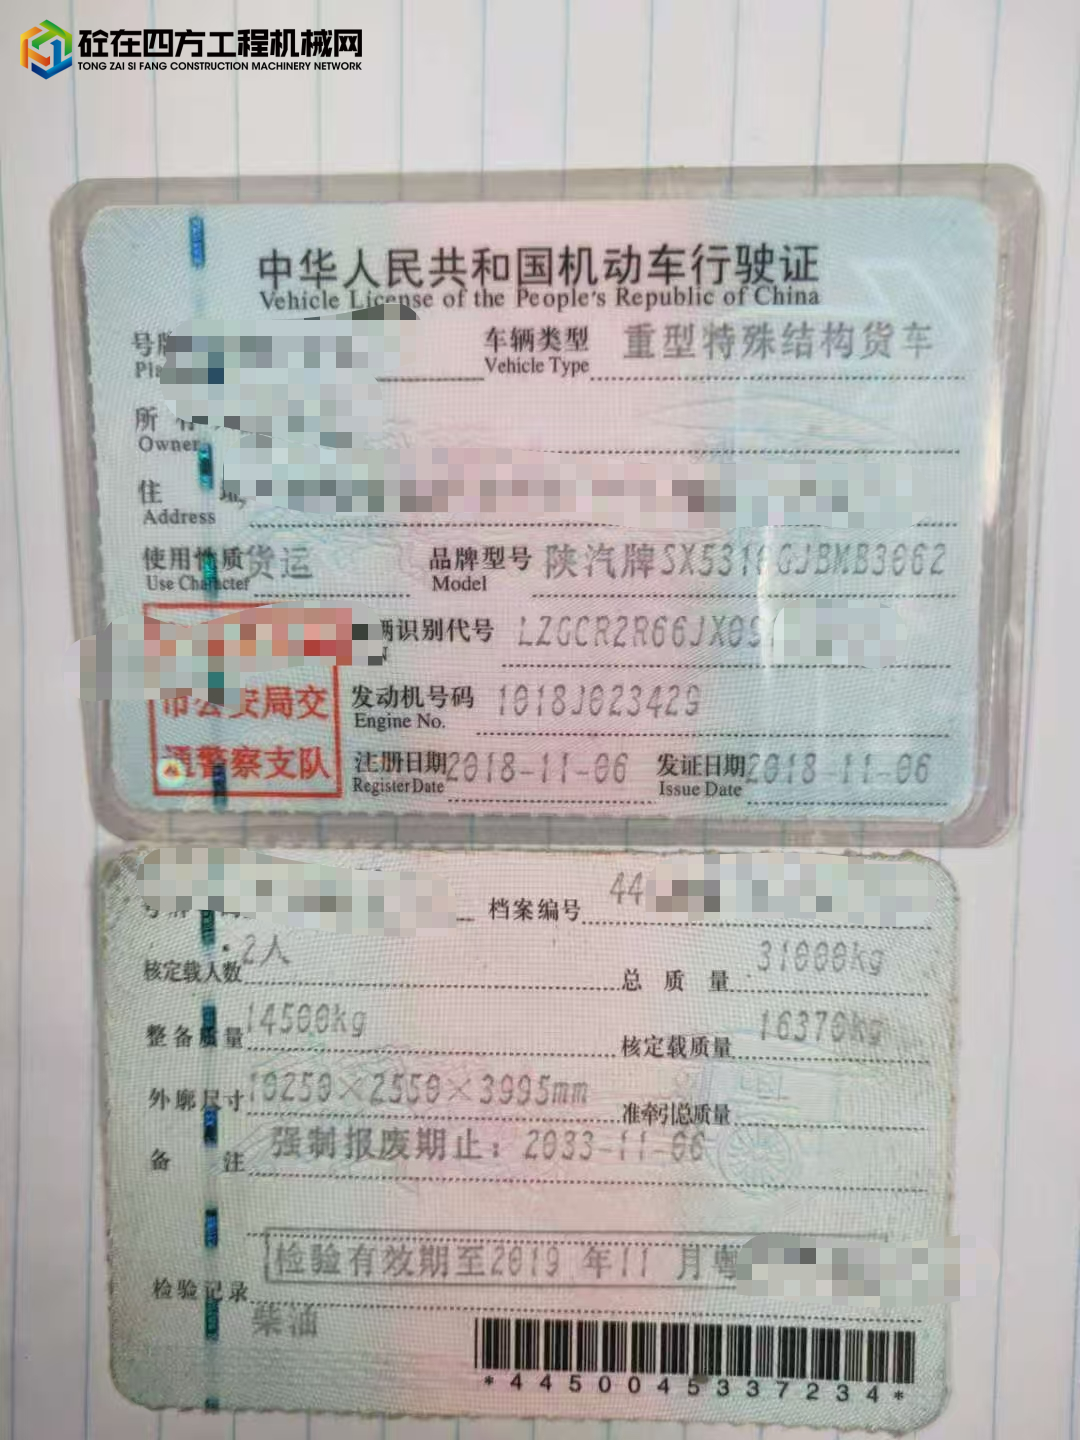 砼在四方工程机械网
TONG ZAI SI FANG CONSTRUCTION MACHINERY NETWORK
中华人民共和国机动车行驶证
Vehicle License of the People's Republic of China
号牌 车辆类型 重型特殊结构货车
Vehicle Type
所
Owner
住
Address
使用性质 货运 品牌型号 陕汽牌SX531 GJBMB3062
Use Character Model
识别代号 LZGCR2R66JX09
市公安局交
发动机号码 1018J023429
Engine No.
通警察支队
注册日期 2018-11-06 发证日期 2018-11-06
Register Date Issue Date
档案编号 44
核定载人数 2人 总质量 31000kg
整备质量 14500kg 核定载质量 16370kg
外廓尺寸 10250×2550×3995mm 准牵引总质量
备注 强制报废期止：2033-11-06
检验记录 检验有效期至2019 年11 月粤
柴油
*4450045337234*